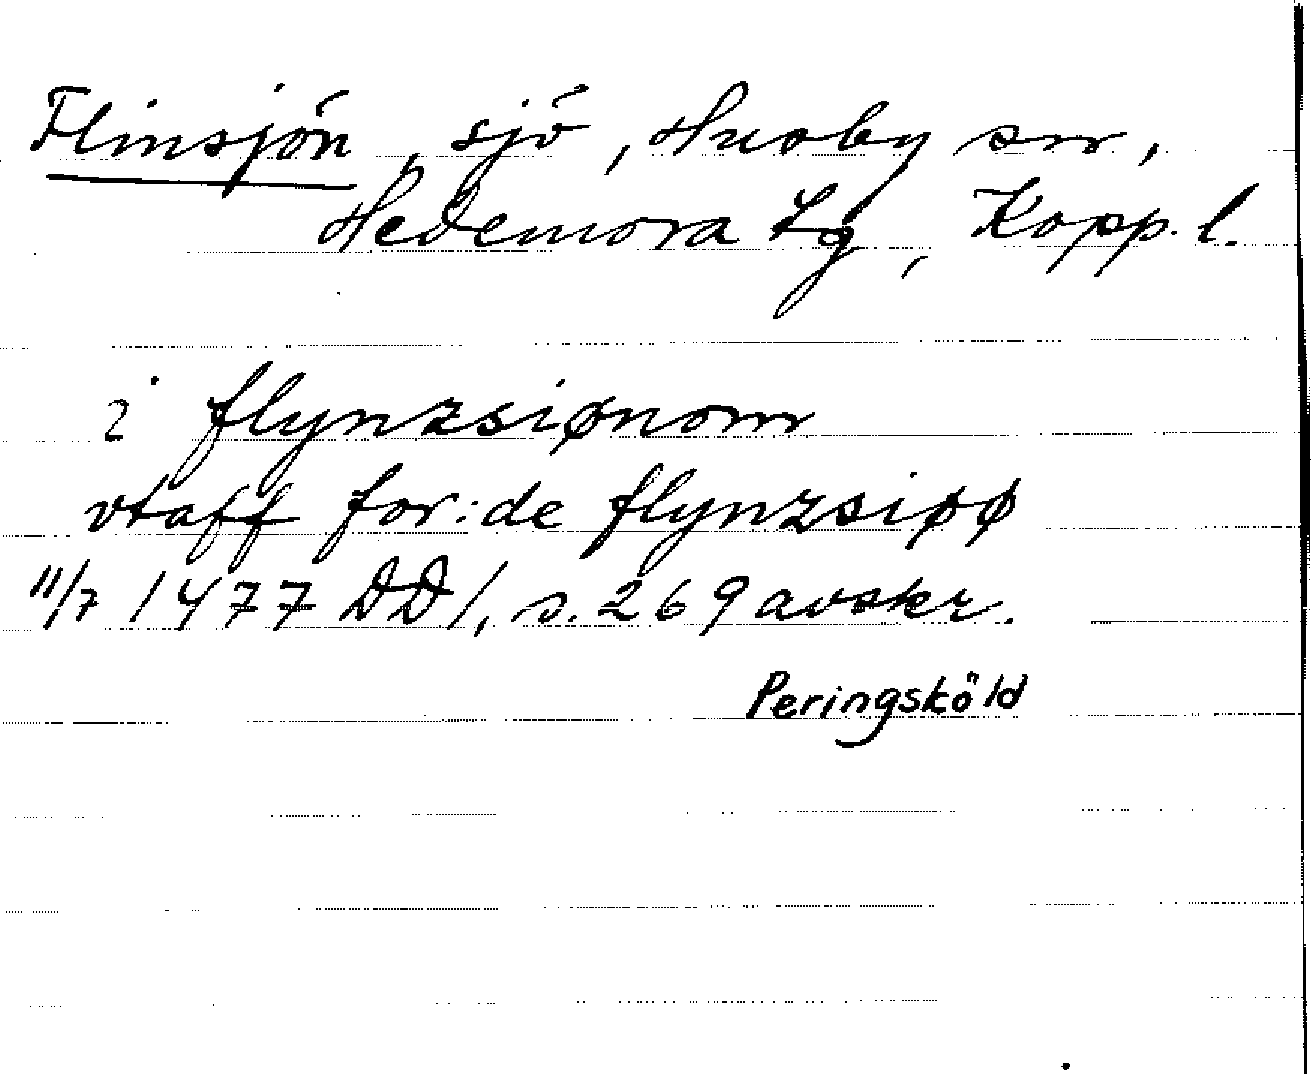 Flinsjön, sjö, Husby sn,
Hedemora tg, Kopp. l.
i flynzsiønom
vtaff for:de flynzsiøø
11/7 1477 DD1, s. 269 avskr.
Peringsköld